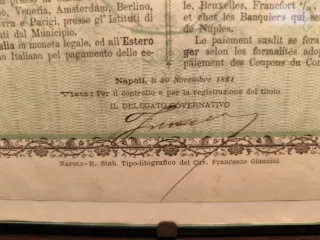 , Venezia, Amsterdam, Berlino,
vra e Parigi, presso gl' Istituti di
ati dal Municipio.
alia in moneta legale, ed all' Estero
o Italiano pel pagamento delle ce-
le, Bruxelles, Francfort s/
et chez les Banquiers qui se
de Naples.
Le paiement susdit se
ger selon les formalités adop
paiement des Coupons du Con
Napoli, li 30 Novembre 1881
Visto: Per il controllo e per la registrazione del titolo
IL DELEGATO GOVERNATIVO
Napoli-R. Stab. Tipo-litografico del Cav. Francesco Giannini